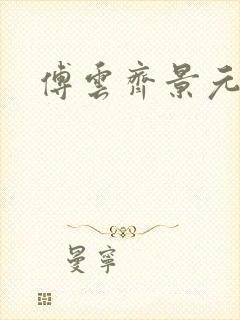 傅雲齊景元
曼寧